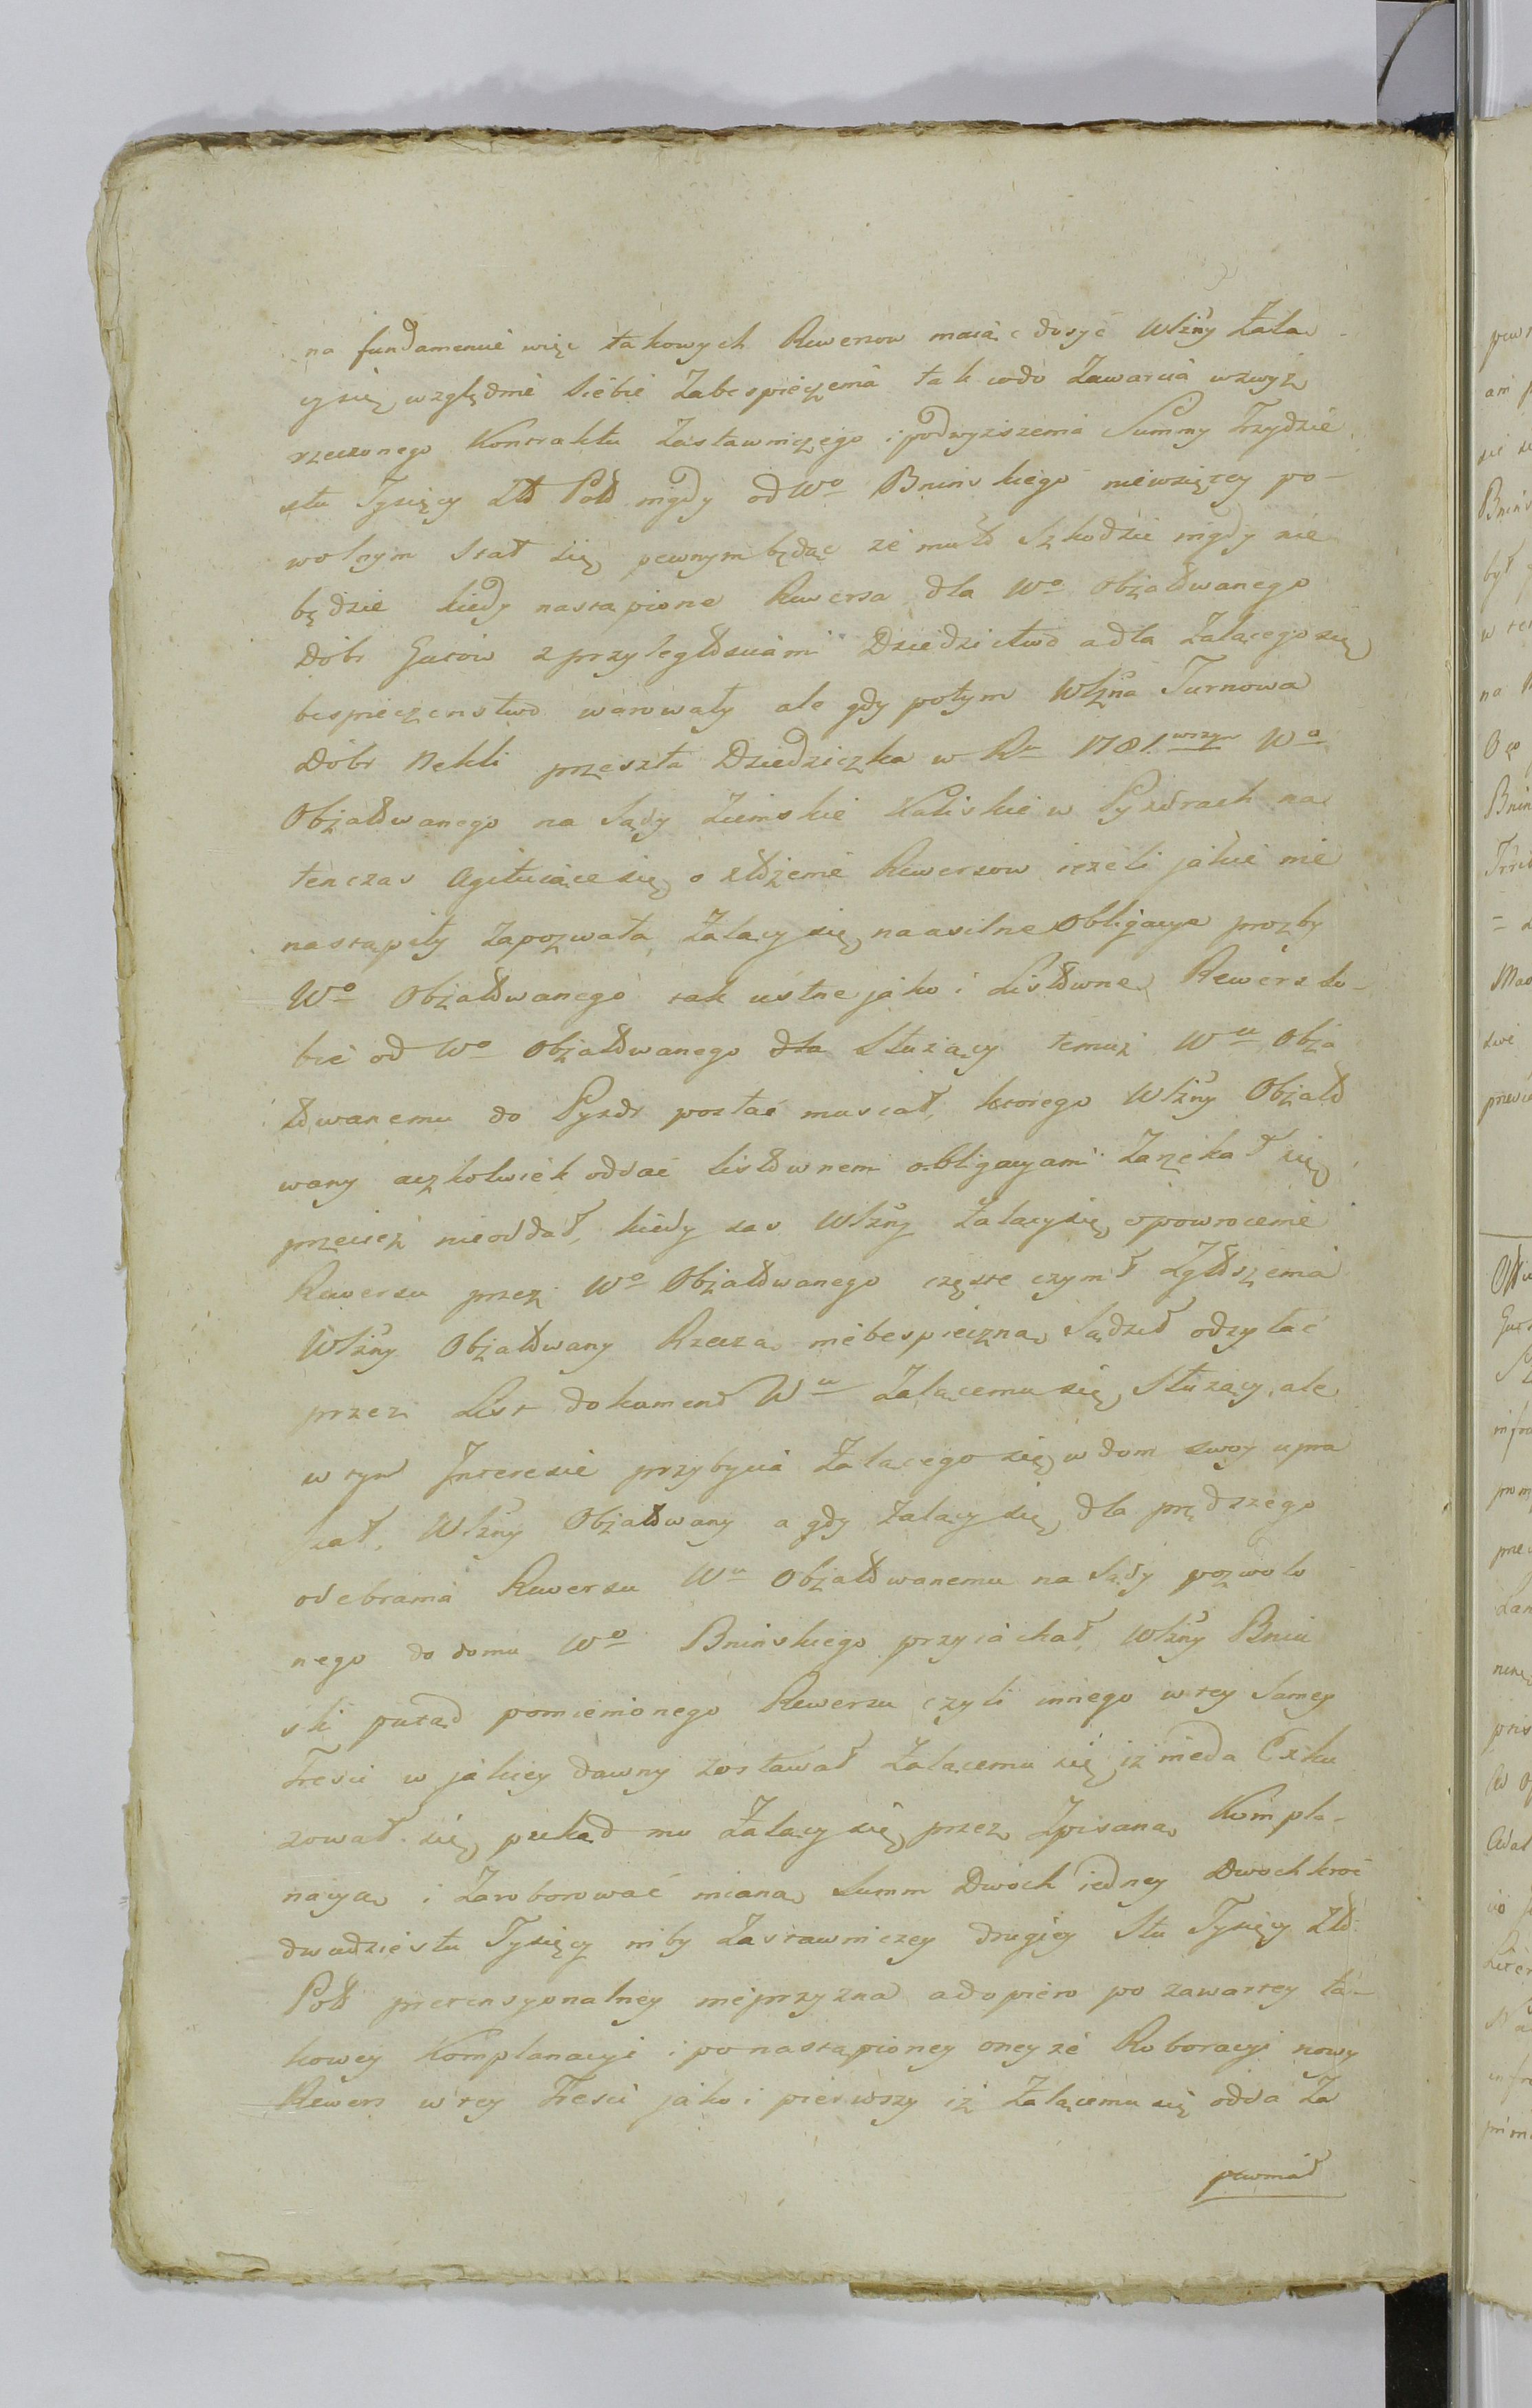 na fundamencie więc takowych Rewersow maiąc dosyć Wlżny Żala-
cy się względnie siebie Zabespieczenia tak co do Zawarcia wzwyż
rzeczonego Kontraktu Zastawniczego i podwyzszenia Summy Trzydzie
stu Tysięcy Złł Poll nigdy od Wo Bninskiego niewziętey po-
wolnym stał się pewnym będąc że mu to Szkodzie nigdy nie
będzie kiedy nastąpione Rewersa dla Wo Obżałłwanego
Dobr Gutow z przyległościami Dziedzictwo a dla Żalącego się
bespieczenstwo warowały ale gdy potym Wlżna Turnowa
Dobr Nekli przeszła Dziedziczka w Ru 1781.wszym Wo
Obżałłwanego na Sądy Ziemskie Kaliskie w Pyzdrach na
tenczas Agituiące się o złożenie Rewersow ieżeli jakie nie
nastąpiły Zapozwała, Żalący się na usilne Obligacye prozby
Wo Obżałłwanego tak ustne jako i Listowne, Rewers so-
bie od Wo Obżałłwanego dla Służący temuż Wu Obża
łłwanemu do Pyzdr posłać musiał, ktorego Wlżny Obżałł
wany aczkolwiek oddać listownemi obligacyami Zarzekał się
przecież nieoddał, kiedy zas Wlżny Żalący się o powrocenie
Rewersu przez Wo Obżałłwanego częste czynił Zgłoszenia
Wlżny Obżałłwany Rzeczą niebespieczną Sądził odzyłać
przez List dokument Wu Żalącemu się Służący, ale
w tym Interesie przybycia Żalącego się w dom swoy upra
szał, Wlżny Obżałłwany a gdy Żalący się dla prędszego
odebrania Rewersu Wu Obżałłwanemu na Sądy pozwolo
nego do domu Wo Bninskiego przyiachał, Wlżny Bnin
ski putąd pomienionego Rewersu czyli innego w tey samey
Tresci w jakiey dawny zostawał Żalącemu się iż nieda Exku
zował się, pokąd mu Żalący się przez Zpisaną Kompla-
nacyą i Zaroborować mianą Summ Dwoch iedney Dwochkroć
dwudziestu Tysięcy niby Zastawniczey drugiey Stu Tysięcy Złł
Poll pretensyonalney nieprzyzna a dopiero po zawartey ta-
kowey Komplanacyi i po nastąpioney oneyże Roboracyi nowy
Rewers w tey Tresci jako i pierwszy iż Żalącemu się odda Za
pewniał